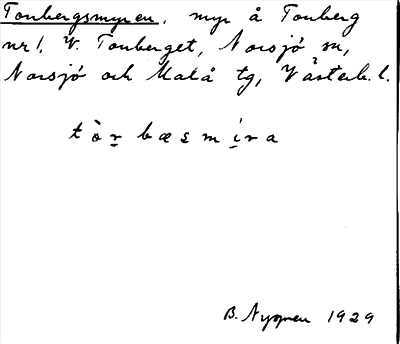 Tonbergsmyren, myr å Tonberg
nr 1, V. Tonberget, Norsjö sn,
Norsjö och Malå tg, Västerb. l.
B. Nygren 1929